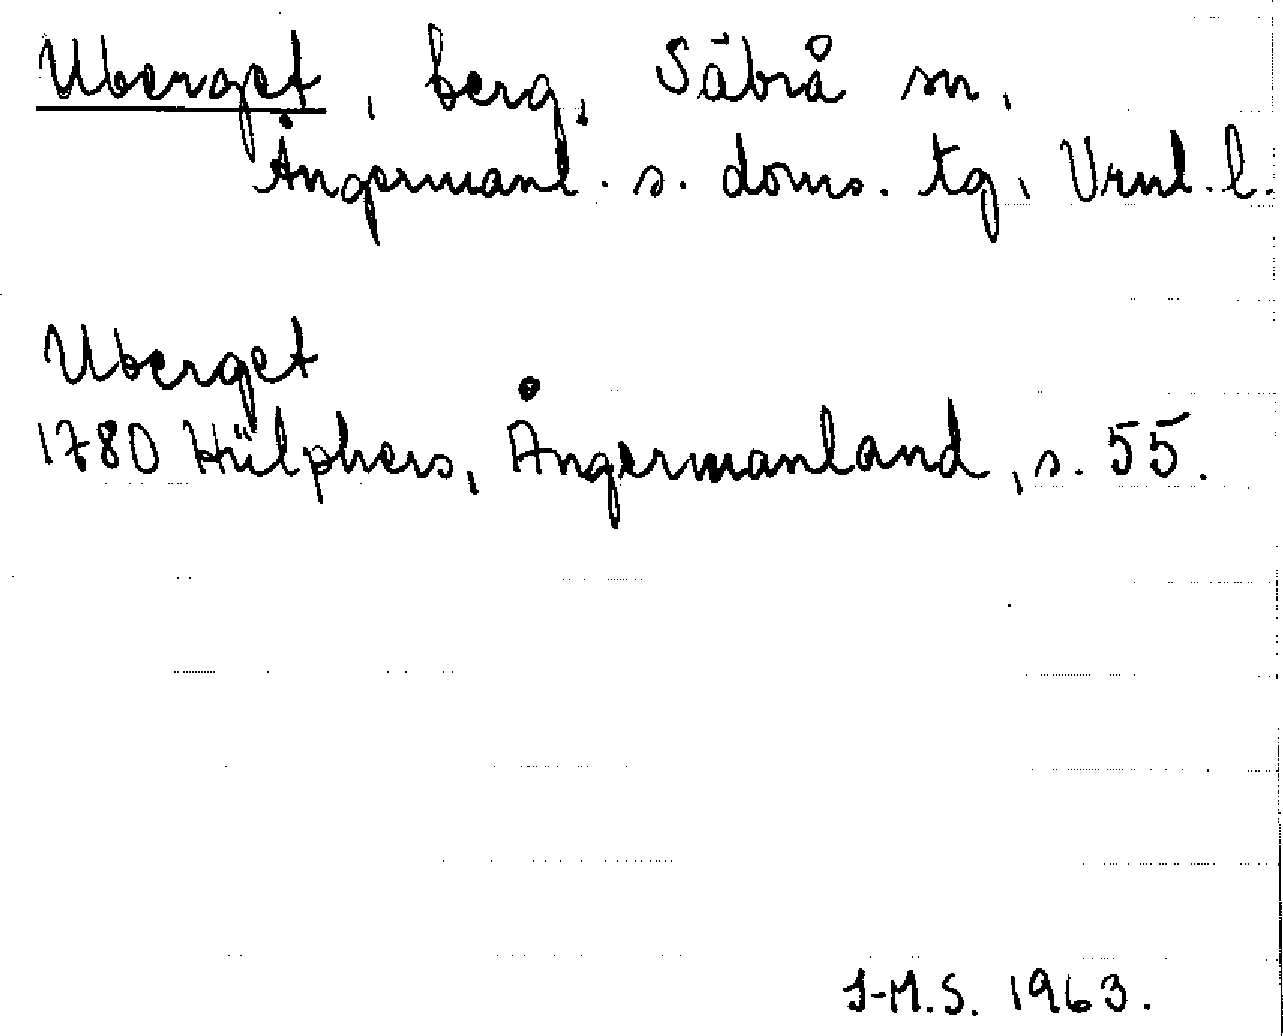 Uberget, berg, Säbrå sn,
Ångermanl. s. doms. tg, Vrnl. l.
Uberget
1780 Hülphers, Ångermanland, s. 55.
I-M.S. 1963.